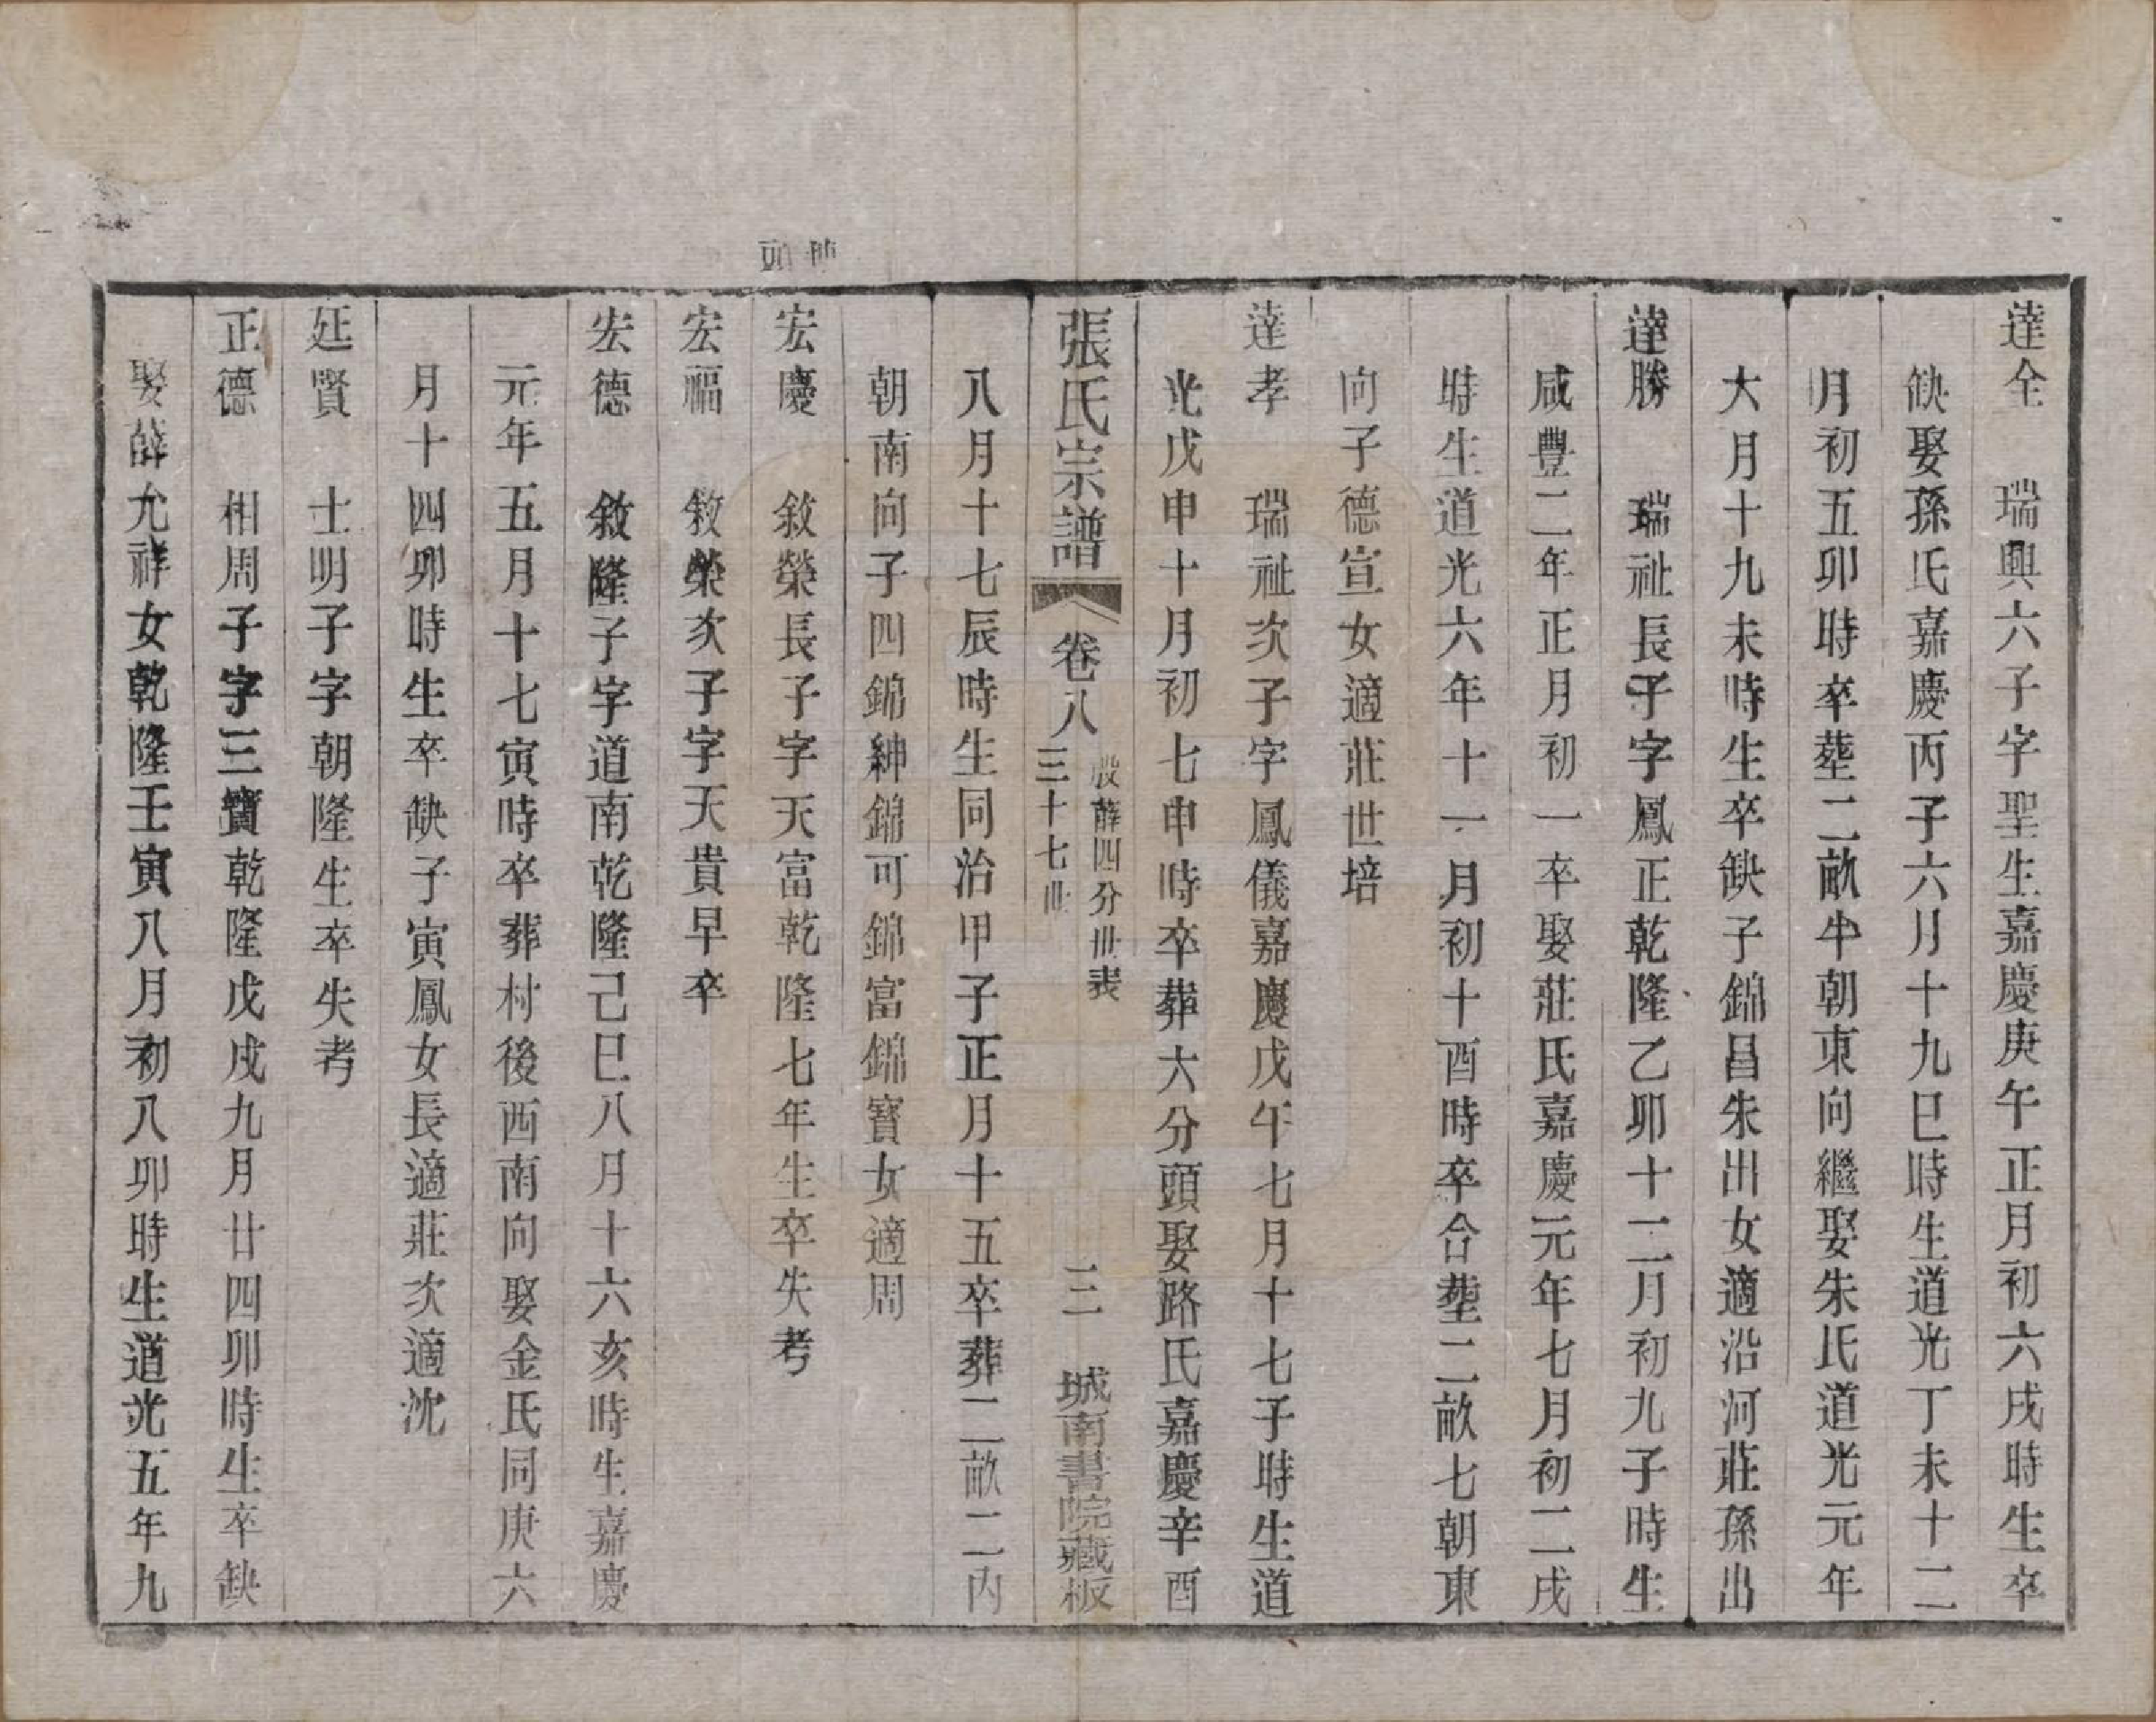 達全　瑞興六子字聖生嘉慶庚午正月初六戌時生卒
缺娶孫氏嘉慶丙子六月十九巳時生道光丁未十二
月初五卯時卒塟二畝牛朝東向繼娶朱氏道光元年
大月十九未時生卒缺子錦昌朱出女適沿河莊孫出
達勝　瑞祉長子字鳳正乾隆乙卯十二月初九子時生
咸豐二年正月初一卒娶莊氏嘉慶元年七月初二戌
時生道光六年十一月初十酉時卒合塟二畝七朝東
向子德宣女適莊世培
達孝　瑞祉次子字鳳儀嘉慶戊午七月十七子時生道
光戊申十月初七申時卒葬六分頭娶路氏嘉慶辛酉
張氏宗譜　卷八　殷薛四分世表　三十七世　三　城南書院藏板
八月十七辰時生同治甲子正月十五卒葬二畝二內
朝南向子四錦紳錦可錦富錦寶女適周
宏慶　敘榮長子字天富乾隆七年生卒失考
宏福　敘榮次子字天貴早卒
宏德　敘隆子字道南乾隆己巳八月十六亥時生嘉慶
元年五月十七寅時卒葬村後西南向娶金氏同庚六
月十四卯時生卒缺子寅鳳女長適莊次適沈
廷賢　士明子字朝隆生卒失考
正德　相周子字三寶乾隆戊戌九月廿四卯時生卒缺
娶薛允祥女乾隆壬寅八月初八卯時生道光五年九